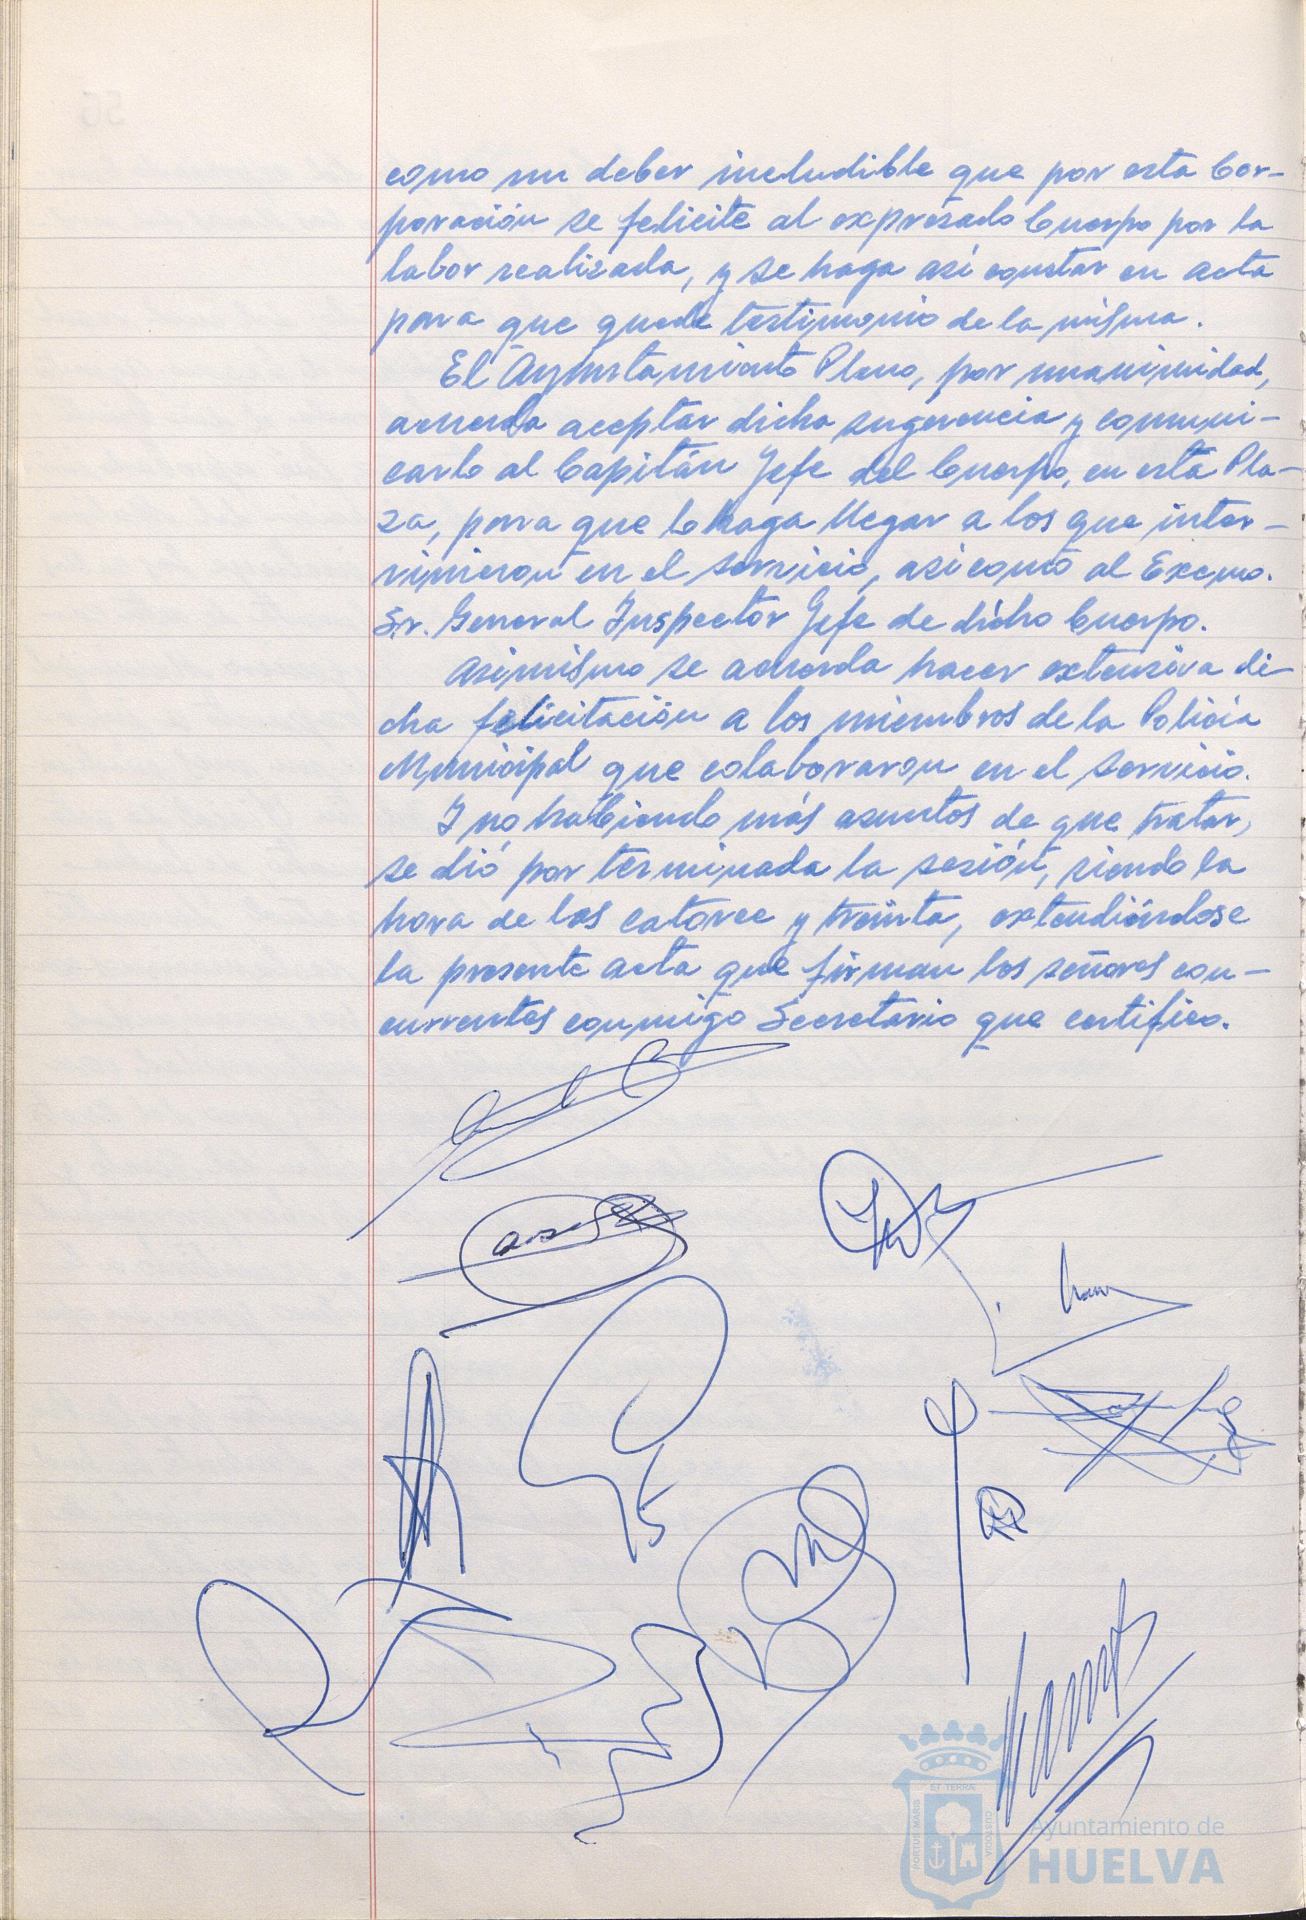 como un deber ineludible que por esta Cor-
poración se felicite al expresado Cuerpo por la
labor realizada, y se haga así constar en acta
para que quede testimonio de la misma.
El Ayuntamiento Pleno, por unanimidad,
acuerda aceptar dicha sugerencia y comuni-
carlo al Capitán Jefe del Cuerpo, en esta Pla-
za, para que lo haga llegar a los que inter-
vinieron en el servicio, así como al Excmo.
Sr. General Inspector Jefe de dicho Cuerpo.
Asimismo se acuerda hacer extensiva di-
cha felicitación a los miembros de la Policia
Municipal que colaboraron en el servicio.
Y no habiendo más asuntos de que tratar,
se dió por terminada la sesión, siendo la
hora de las catorce y treinta, extendiéndose
la presente acta que firman los señores con-
currentes conmigo Secretario que certifico.
PORTUS MARIS
ET TERRAE
CUSTODIA
Ayuntamiento de
HUELVA